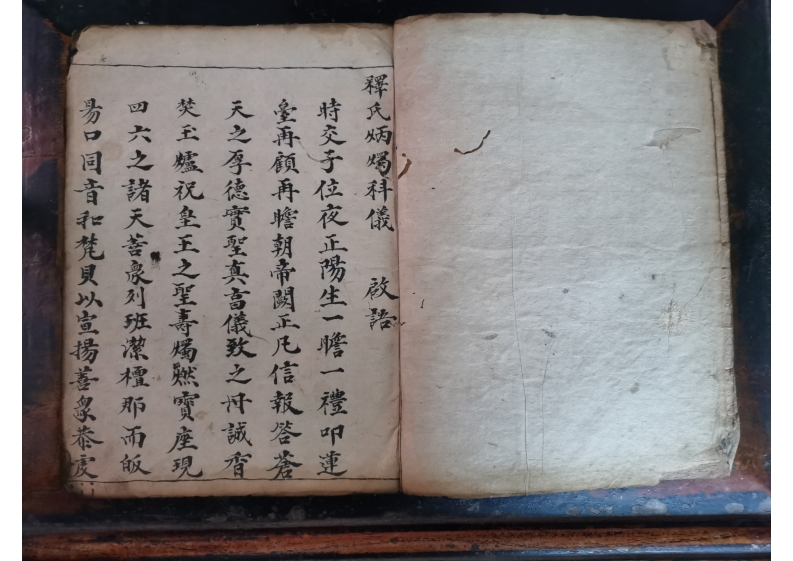 釋氏炳燭科儀 啟語
時交子位夜正陽生一瞻一禮叩蓮
臺再顧再瞻朝帝闕正凡信報答蒼
天之厚德實聖真啇儀致之丹誠香
焚玉爐祝皇王之聖壽燭燃寶座現
四六之諸天善衆列班潔檀那而皈
昜口同音和梵貝以宣揚善衆恭虔